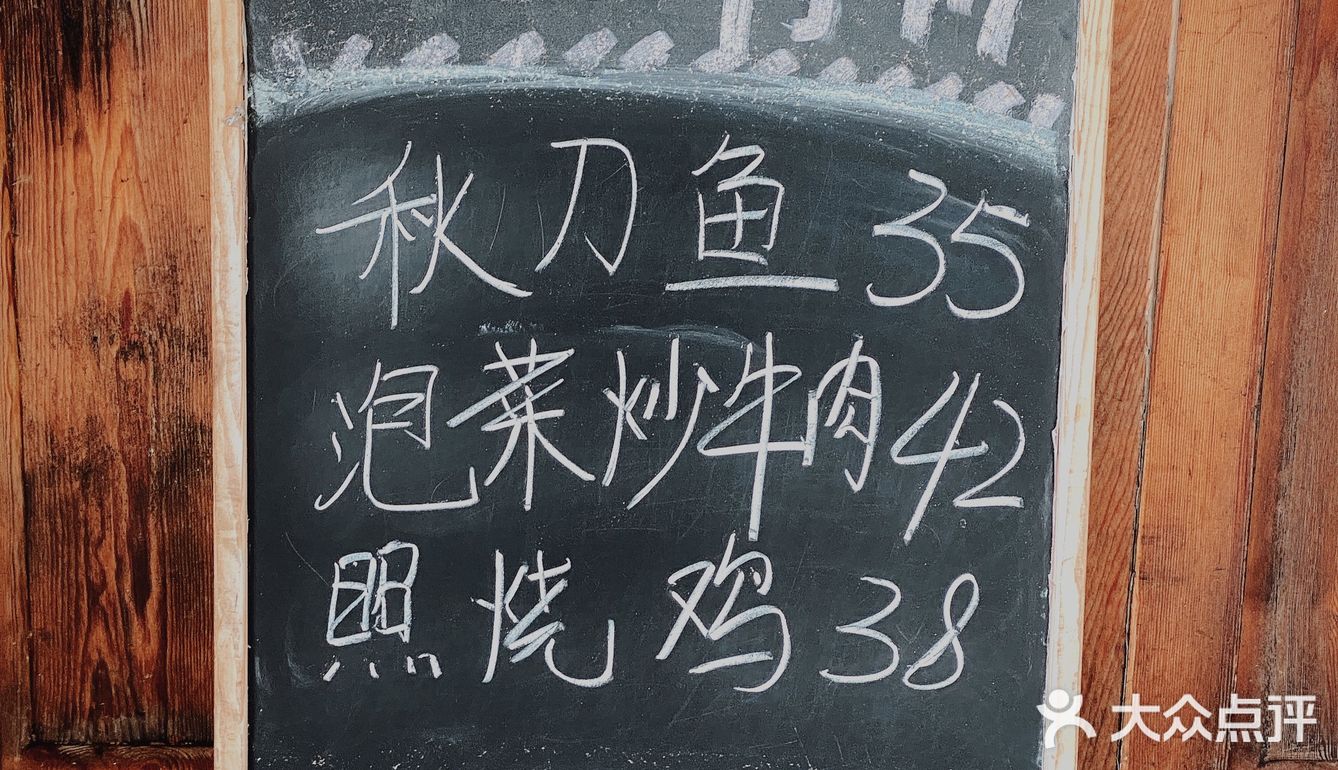 秋刀鱼 35
泡菜炒牛肉 42
照烧鸡 38
大众点评